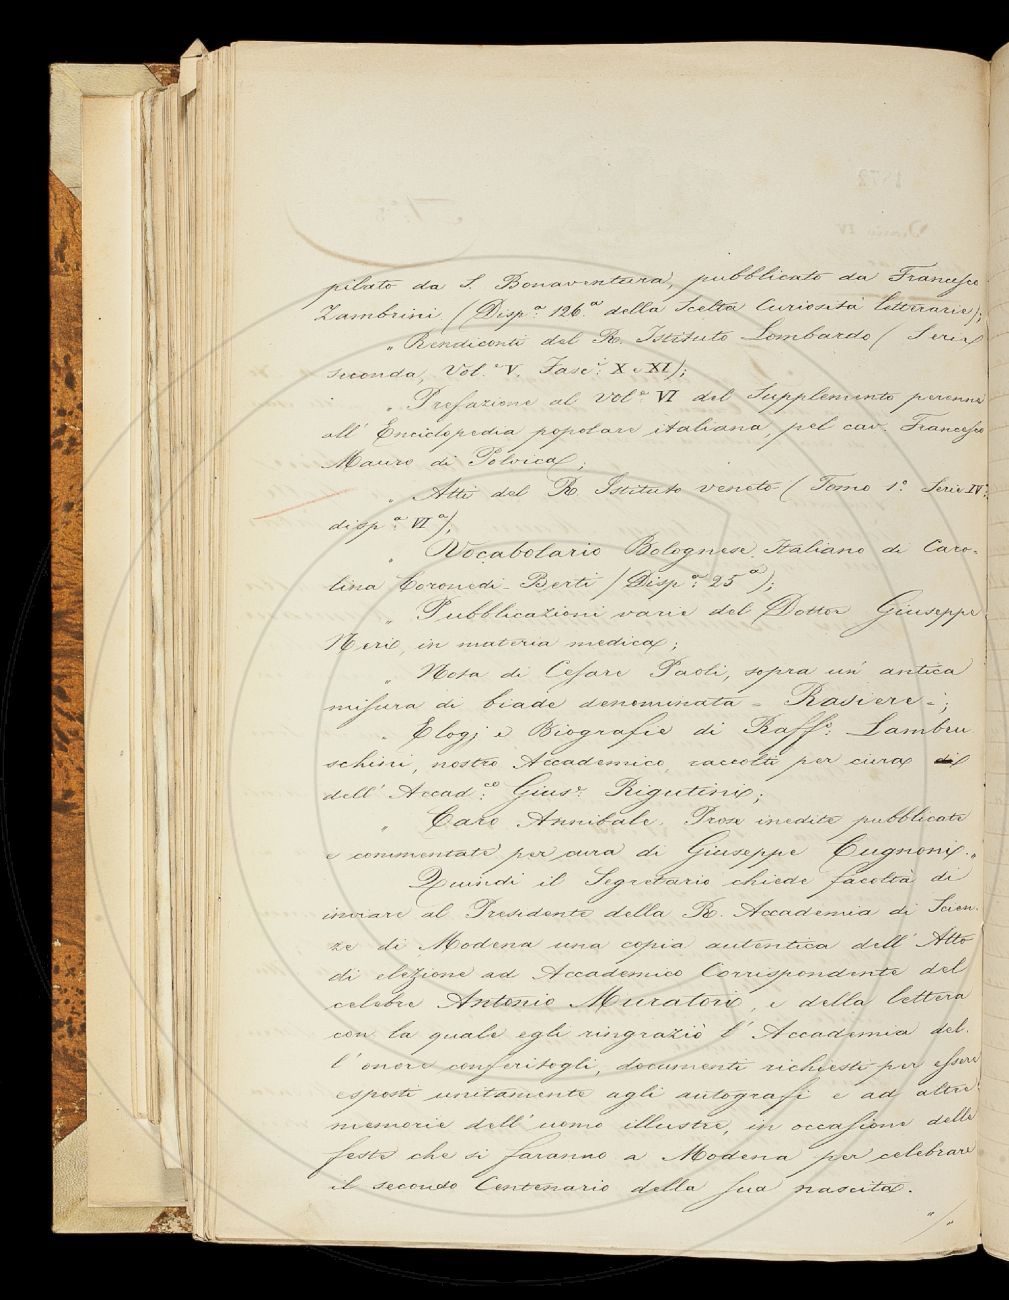 pilato da S. Bonaventura, pubblicato da Francesco
Zambrini (Disp.a 126.a della Scelta Curiosità letterarie);
„ Rendiconti del R. Istituto Lombardo (Serie
seconda, Vol. V. Fasc.i X e XI);
„ Prefazione al vol.e VI del Supplemento perenne
all' Enciclopedia popolare italiana, pel cav. Francesco
Mauro di Polvica;
„ Atti del R. Istituto veneto (Tomo 1.° Serie IV.a
disp.a VI a);
„ Vocabolario Bolognese Italiano di Caro-
lina Coronedi-Berti (Disp.a 25 a);
„ Pubblicazioni varie del Dottor Giuseppe
Neri, in materia medica;
„ Nota di Cesare Paoli, sopra un' antica
misura di biade denominata = Rasiere =;
„ Elogj e Biografie di Raff.o Lambru
schini, nostro Accademico, raccolte per cura
dell' Accad.co Gius.e Rigutini;
„ Caro Annibale. Prose inedite pubblicate
e commentate per cura di Giuseppe Cugnoni. „
Quindi il Segretario chiede facoltà di
inviare al Presidente della R. Accademia di Scien-
ze di Modena una copia autentica dell' Atto
di elezione ad Accademico Corrispondente del
celebre Antonio Muratori, e della lettera
con la quale egli ringraziò l' Accademia del-
l' onore conferitogli, documenti richiesti per essere
esposti unitamente agli autografi e ad altre
memorie dell' uomo illustre, in occasione delle
feste che si faranno a Modena per celebrare
il secondo Centenario della sua nascita.